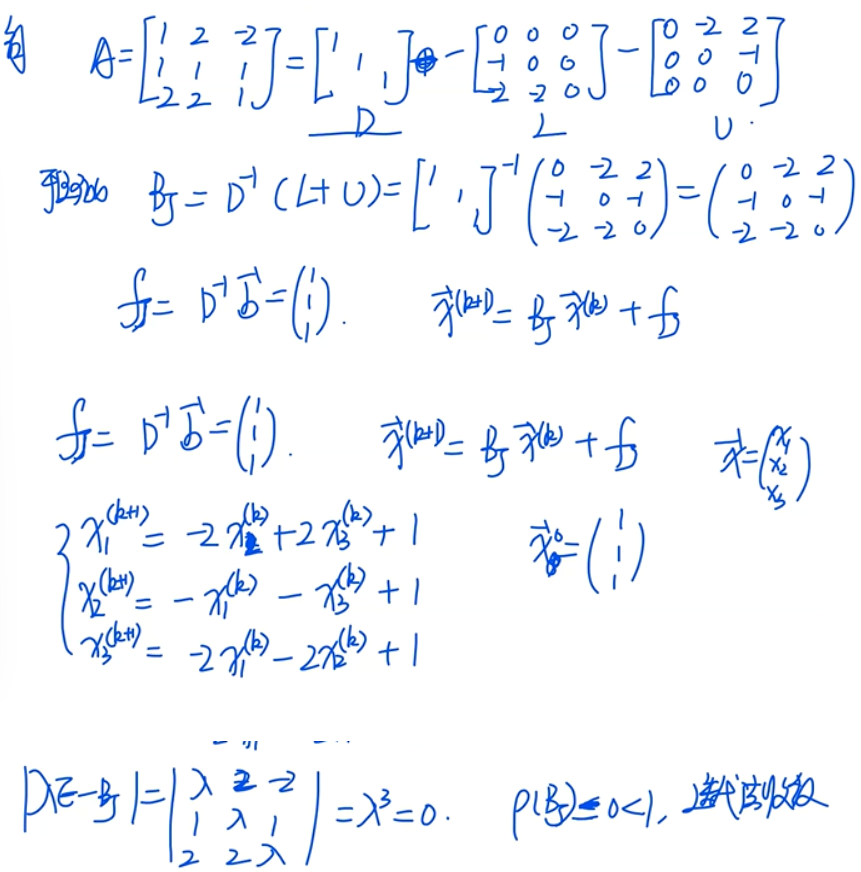 解 A = [1 2 -2; 1 1 1; 2 2 1] = [1 1 1] - [0 0 0; -1 0 0; -2 -2 0] - [0 -2 2; 0 0 -1; 0 0 0]
D L U
B_J = D⁻¹(L+U) = [1 1 1]⁻¹ (0 -2 2; -1 0 -1; -2 -2 0) = (0 -2 2; -1 0 -1; -2 -2 0)
f_J = D⁻¹b⃗ = (1; 1; 1). x⃗^(k+1) = B_J x⃗^(k) + f_J
f_J = D⁻¹b⃗ = (1; 1; 1). x⃗^(k+1) = B_J x⃗^(k) + f_J x⃗ = (x₁; x₂; x₃)
{ x₁^(k+1) = -2x₂^(k) + 2x₃^(k) + 1 x⃗⁰ = (1; 1; 1)
x₂^(k+1) = -x₁^(k) - x₃^(k) + 1
x₃^(k+1) = -2x₁^(k) - 2x₂^(k) + 1
|λE-B_J| = |λ 2 -2; 1 λ 1; 2 2 λ| = λ³ = 0. ρ(B_J) = 0 < 1, 迭代法收敛